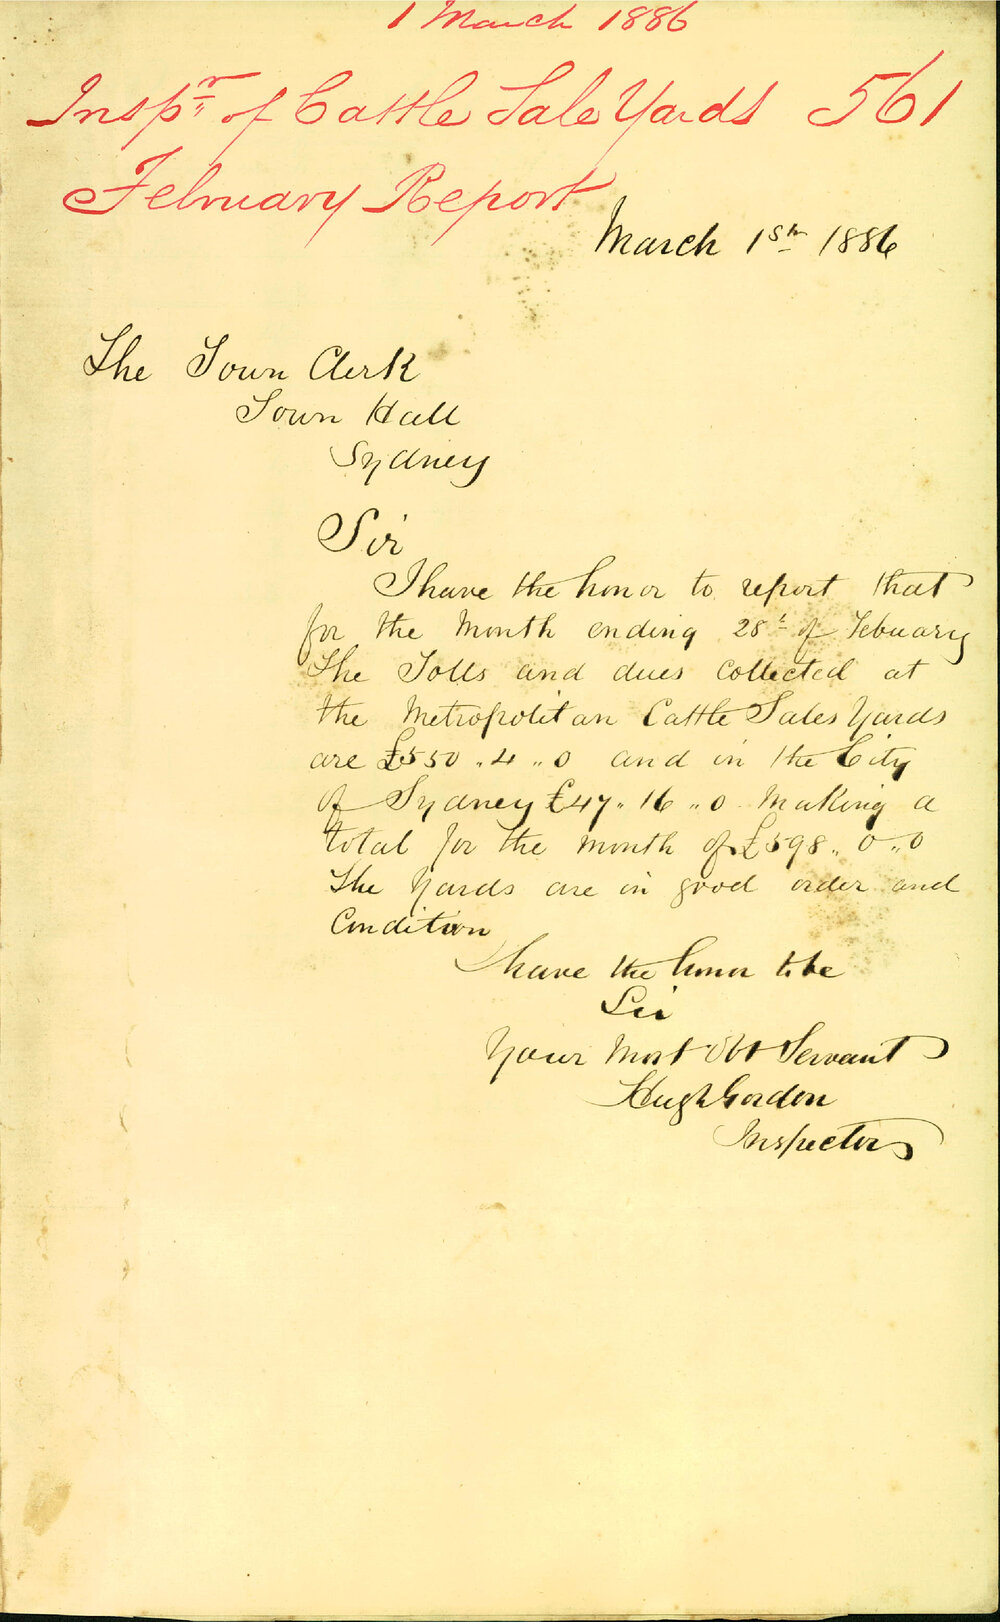 1 March 1886
Inspr. of Cattle Sale Yards 561
February Report
March 1sth 1886
The Town Clerk
Town Hall
Sydney
Sir
I have the honor to report that
for the Month ending 28t of Febuary
The Tolls and dues Collected at
the Metropolitan Cattle Sales Yards
are £550 „ 4 „ 0 and in the City
of Sydney £47 „ 16 „ 0 Making a
total for the month of £598 „ 0 „ 0
The Yards are in good order and
Condition
I have the honor to be
Sir
Your Most Obt Servant
Hugh Gordon
Inspector